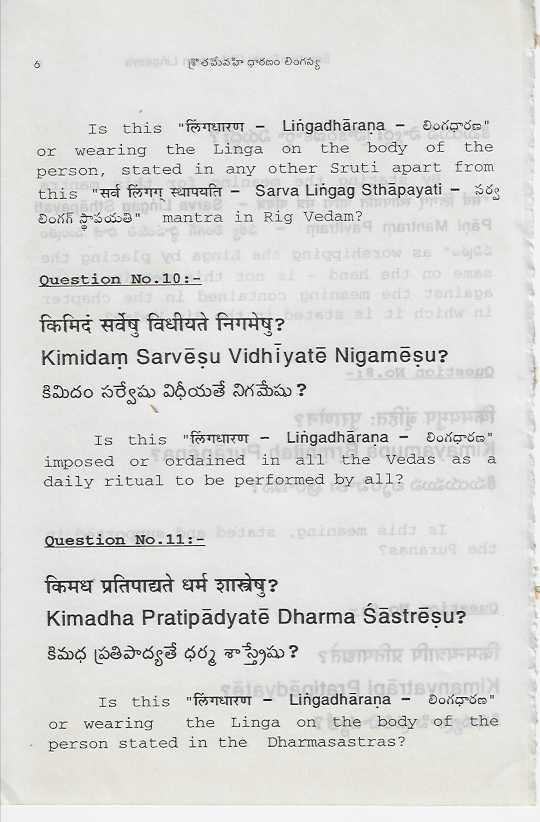 6 శ్రౌతమేవహి ధారణం లింగస్య
Is this "लिंगधारण – Liṅgadhāraṇa – లింగధారణ"
or wearing the Linga on the body of the
person, stated in any other Sruti apart from
this "सर्व लिंगग् स्थापयति – Sarva Liṅgag Sthāpayati – సర్వ
లింగగ్ స్థాపయతి" mantra in Rig Vedam?
Question No.10:-
किमिदं सर्वेषु विधीयते निगमेषु?
Kimidaṃ Sarvēṣu Vidhīyatē Nigamēṣu?
కిమిదం సర్వేషు విధీయతే నిగమేషు ?
Is this "लिंगधारण – Liṅgadhāraṇa – లింగధారణ"
imposed or ordained in all the Vedas as a
daily ritual to be performed by all?
Question No.11:-
किमध प्रतिपाद्यते धर्म शास्त्रेषु?
Kimadha Pratipādyatē Dharma Śāstrēṣu?
కిమధ ప్రతిపాద్యతే ధర్మ శాస్త్రేషు ?
Is this "लिंगधारण – Liṅgadhāraṇa – లింగధారణ"
or wearing the Linga on the body of the
person stated in the Dharmasastras?